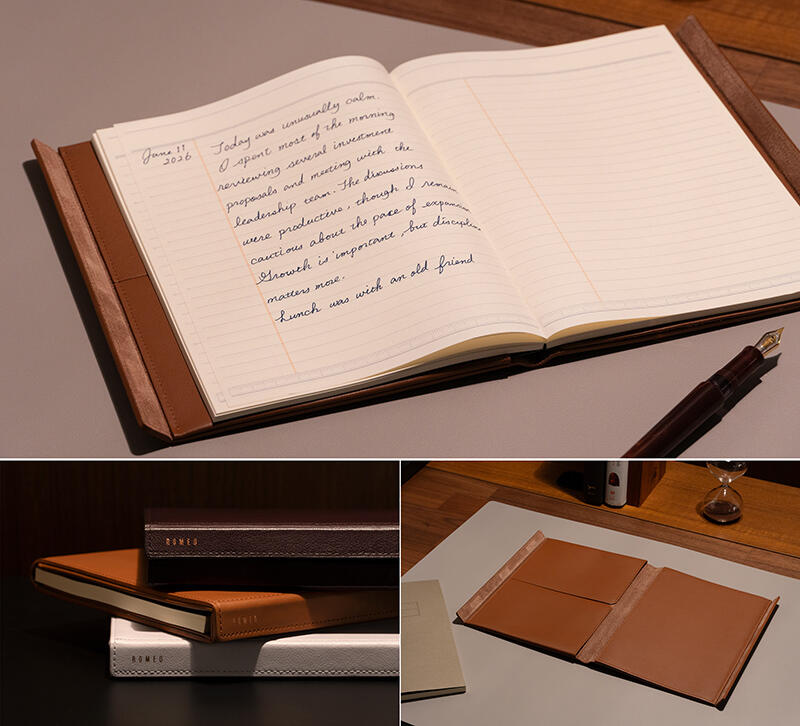 June 11
2026
Today was unusually calm.
I spent most of the morning
reviewing several investment
proposals and meeting with the
leadership team. The discussions
were productive, though I remain
cautious about the pace of expansion
Growth is important, but discipline
matters more.
Lunch was with an old friend
ROMEO
ROMEO